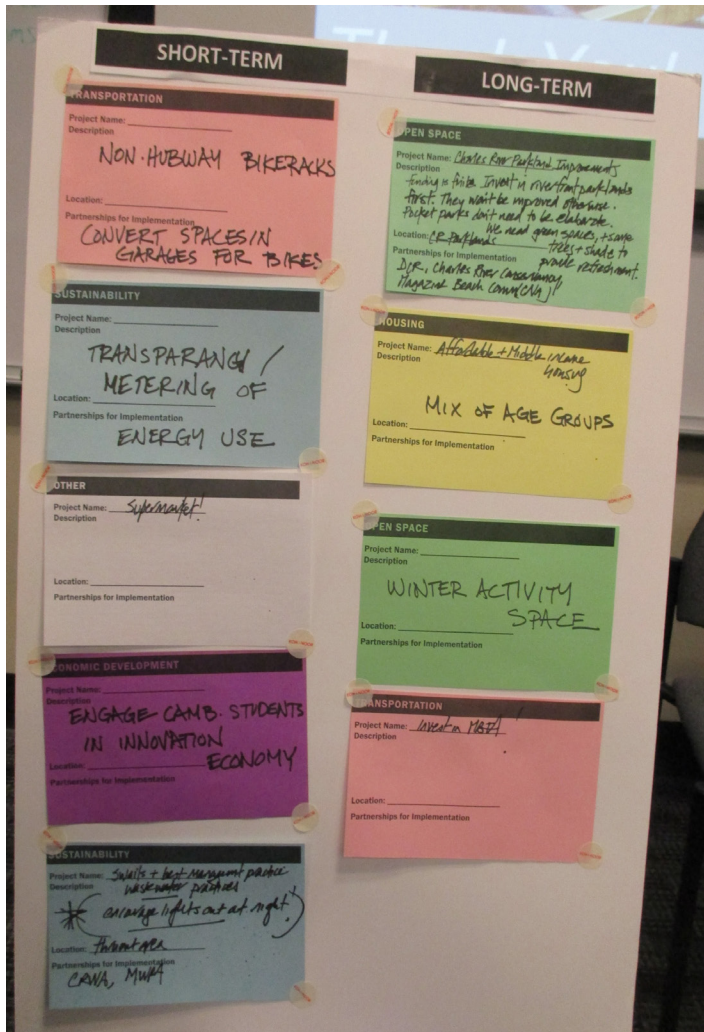 SHORT-TERM
TRANSPORTATION
Project Name:
Description
NON-HUBWAY BIKERACKS
Location:
Partnerships for Implementation
CONVERT SPACES IN
GARAGES FOR BIKES
SUSTAINABILITY
Project Name:
Description
TRANSPARANCY /
METERING OF
Location:
Partnerships for Implementation
ENERGY USE
OTHER
Project Name: Supermarket!
Description
Location:
Partnerships for Implementation
ECONOMIC DEVELOPMENT
Project Name:
Description
ENGAGE CAMB. STUDENTS
IN INNOVATION
Location: ECONOMY
Partnerships for Implementation
SUSTAINABILITY
Project Name: + best managment practice
Description wastewater practices
encourage lights out at night!
Location: area
Partnerships for Implementation
CRWA, MWRA
LONG-TERM
OPEN SPACE
Project Name: Charles River Parkland Improvements
Description
Funding is finite. Invest in riverfront parklands
first. They won't be improved otherwise.
Pocket parks don't need to be elaborate.
We need green spaces, + some
Location: CR Parklands trees + shade to
Partnerships for Implementation provide refreshment.
DCR, Charles River Conservancy
Magazine Beach Comm (CNA)
HOUSING
Project Name: Affordable + Middle income
Description housing
MIX OF AGE GROUPS
Location:
Partnerships for Implementation
OPEN SPACE
Project Name:
Description
WINTER ACTIVITY
SPACE
Location:
Partnerships for Implementation
TRANSPORTATION
Project Name: Invest in MBTA!
Description
Location:
Partnerships for Implementation